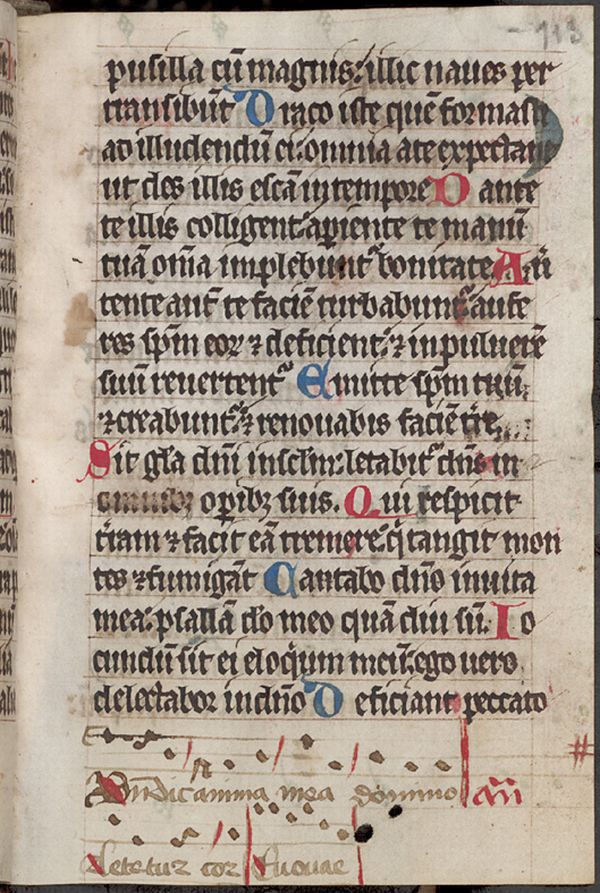 113
pusilla cū magnis: illic naues per
transibūt Draco iste quē formasti
ad illudendū ei: omnia a te expectant
ut des illis escā in tempore Dante
te illis colligent: apiente te manū
tuā oīa implebuntᷣ bonitate. Auͥ
tente aut te faciē turbabuntᷣ: aufe
res spm̄ eoꝝ ⁊ deficient: ⁊ in puluerē
suū reuertentᷣ Emitte spm̄ tuū
⁊ creabuntᷣ: ⁊ renouabis faciē tr̄e
Sit glā dn̄i in sclm: letabitᷣ dn̄s in
omnibꝫ opibꝫ suis. Qui respicit
tr̄am ⁊ facit eā tremere: qͥ tangit mon
tes ⁊ fumigāt Cantabo dn̄o in uita
mea: psallā dō meo quā diu sū. Io
cundū sit ei eloqͥum meū: ego uero
delectabor in dn̄o Deficiant peccato
Bn̄dic anima mea domino añ
Letetur cor Euouae